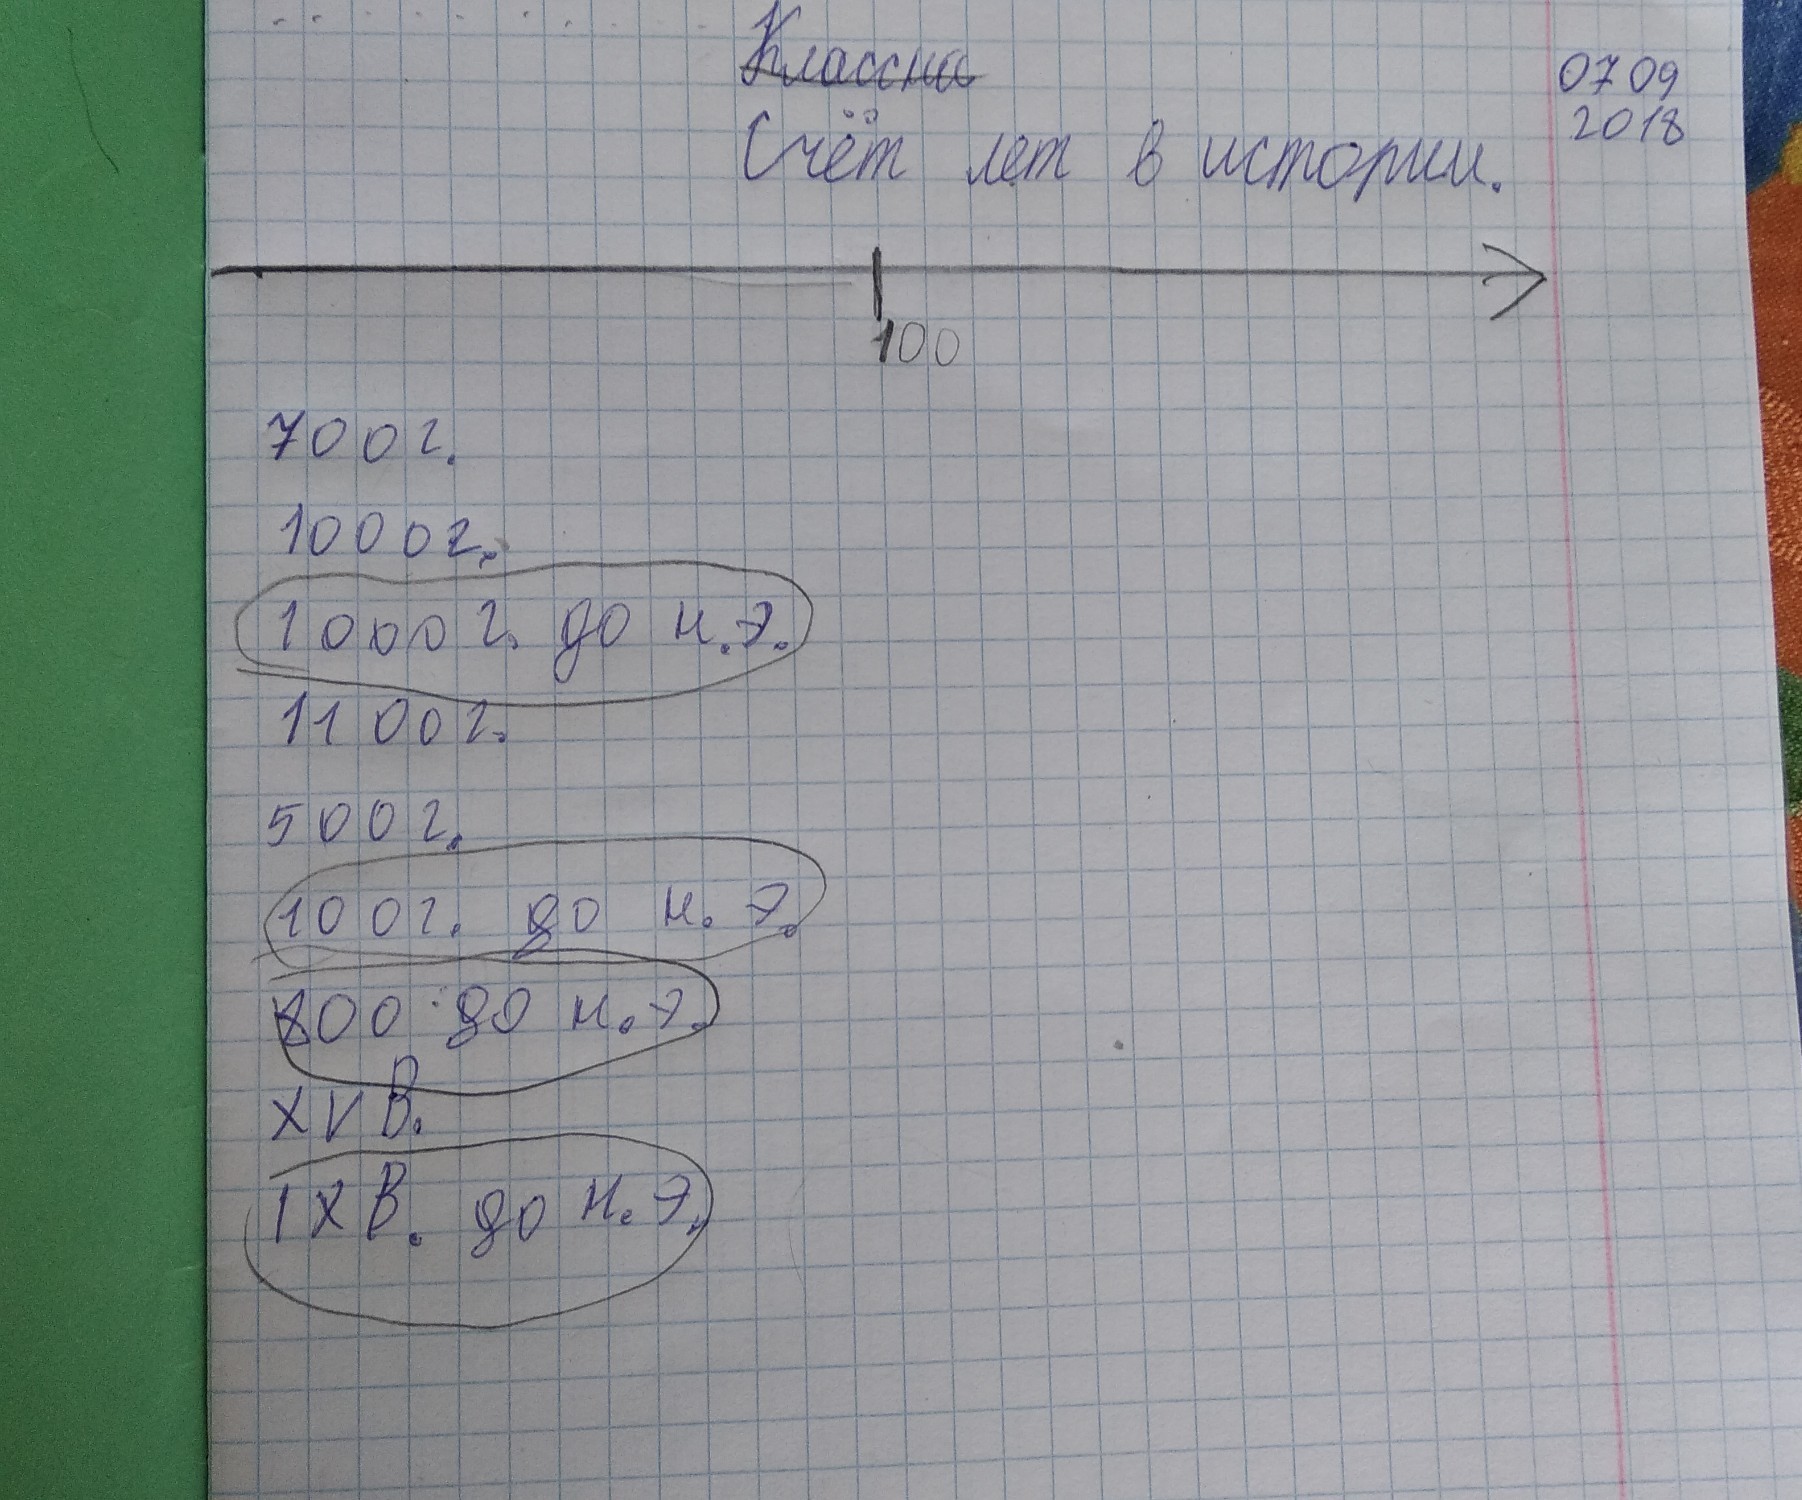 Классна
07 09
2018
Счёт лет в истории.
100
700г.
1000г.
1000г. до н.э.
1100г.
500г.
100г. до н.э.
800 до н.э.
XV В.
IX В. до н.э.